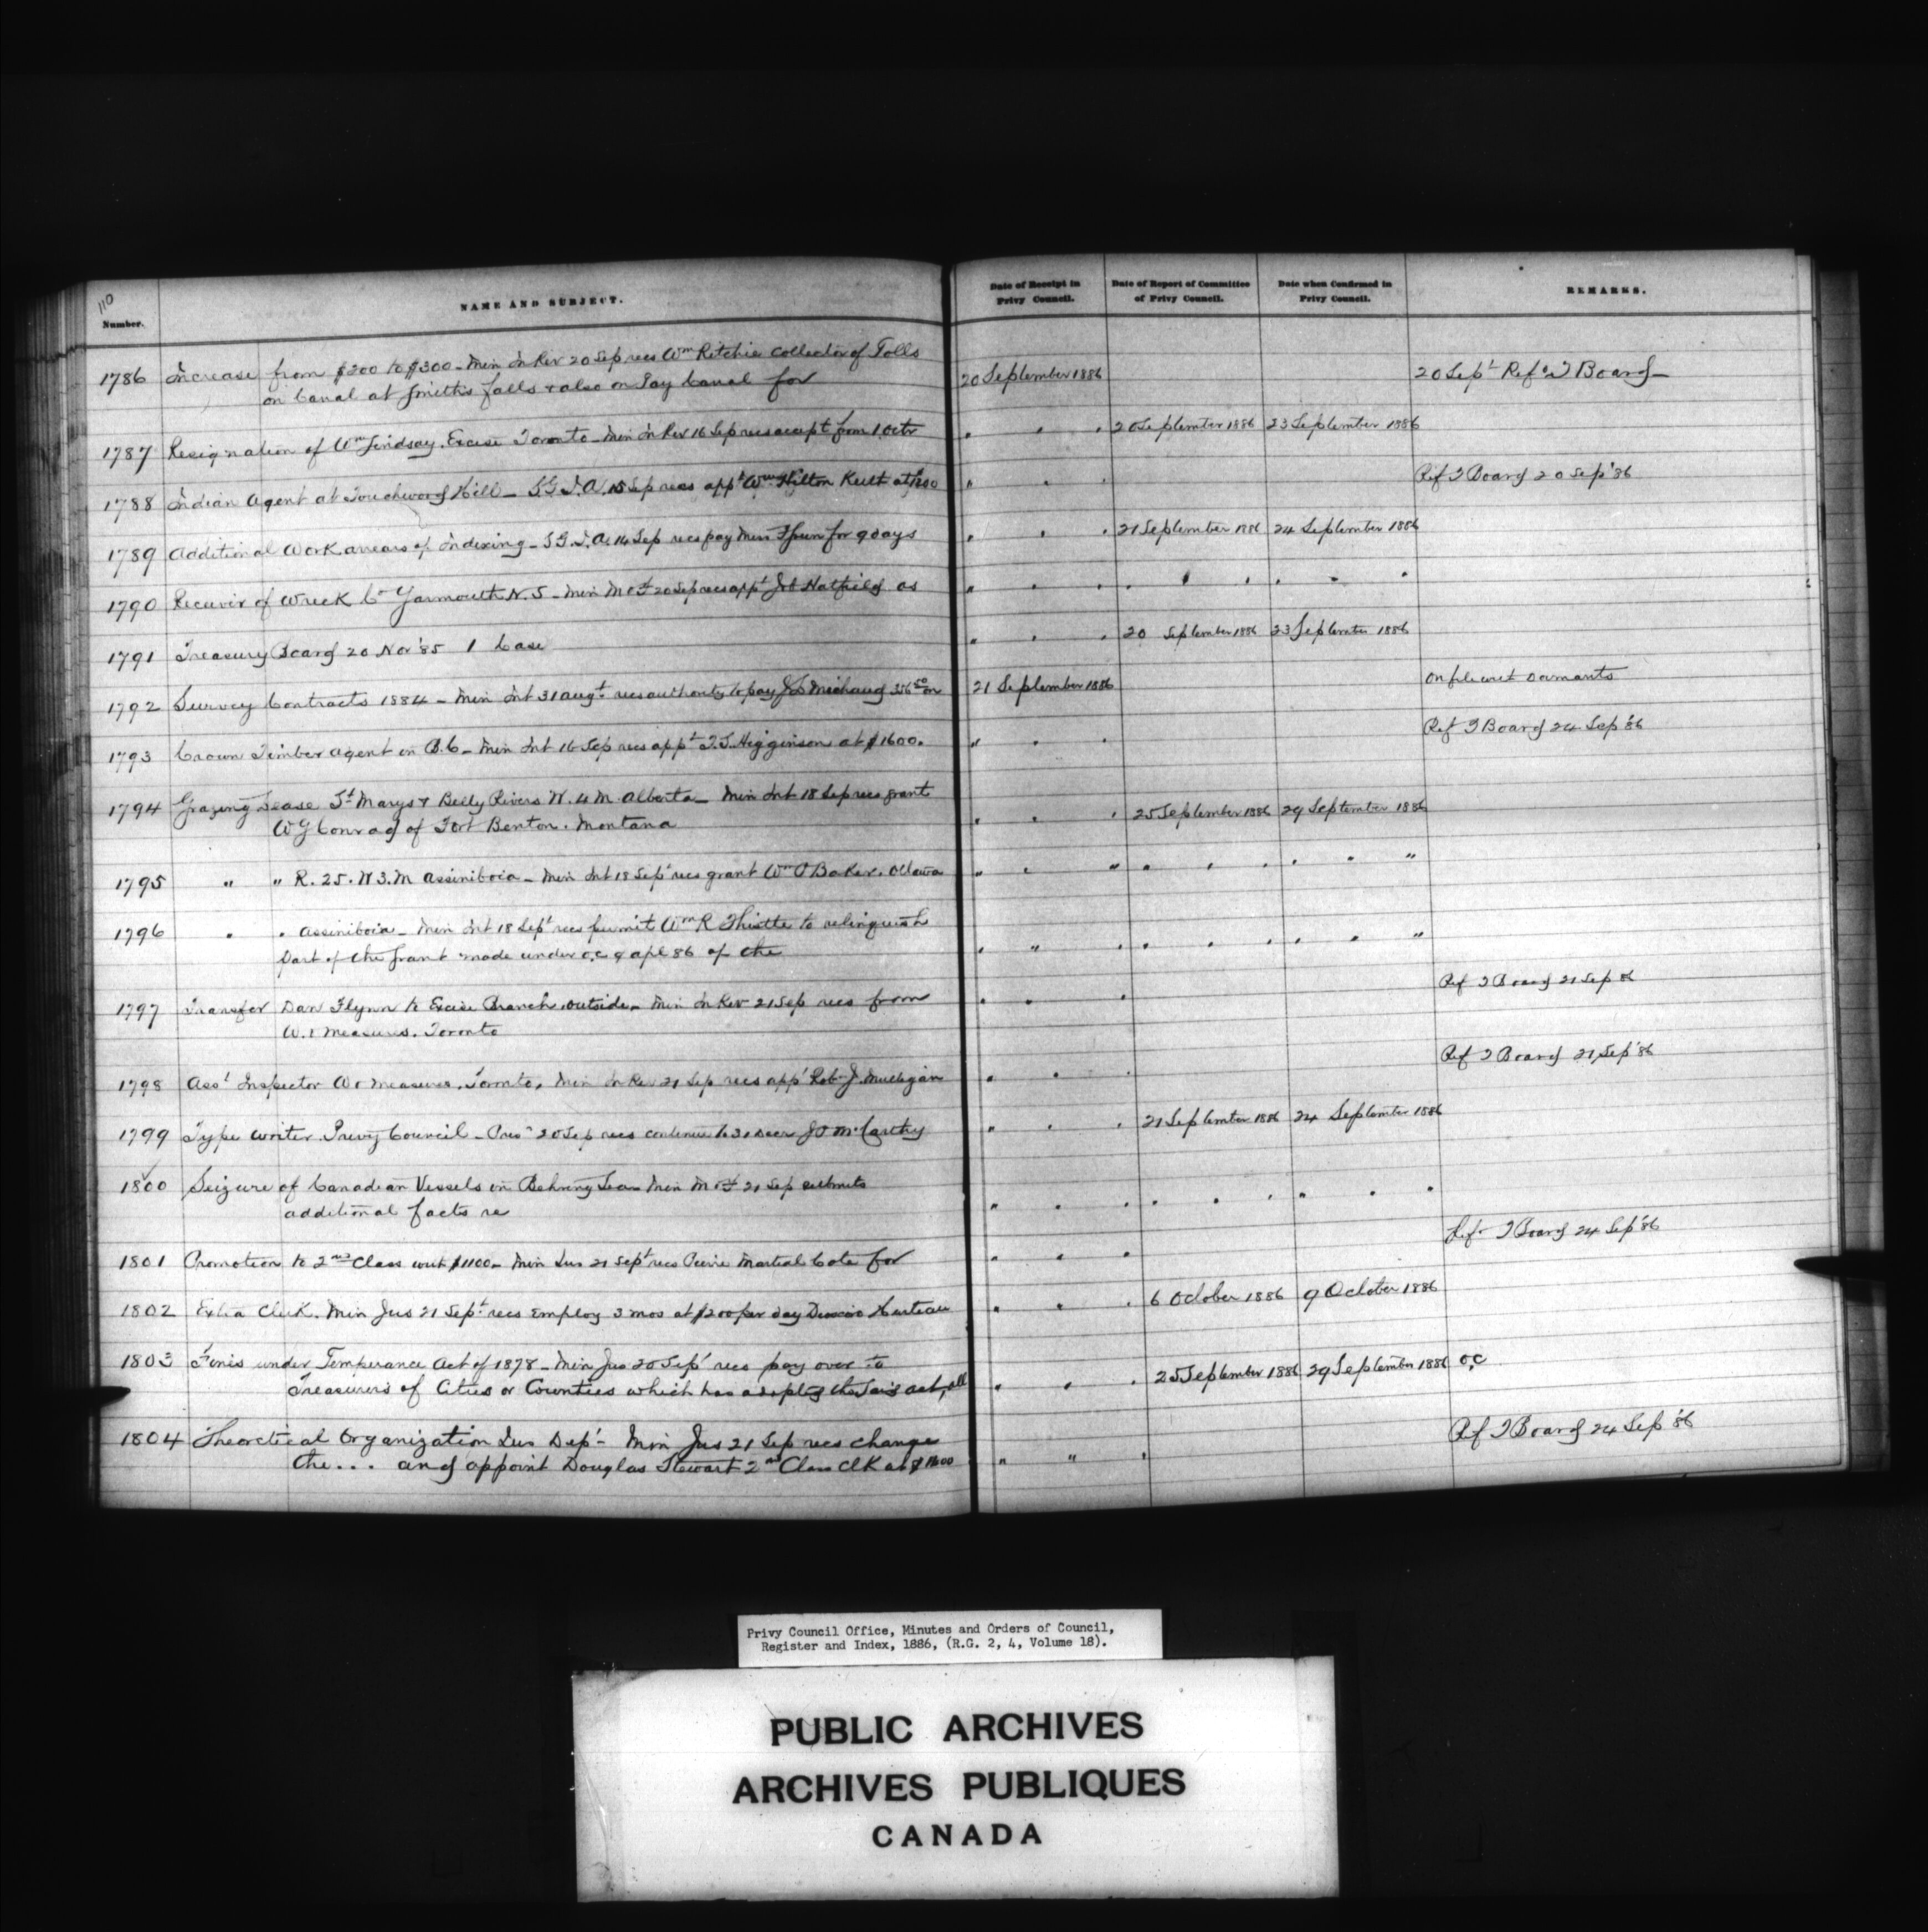 110
Number.
NAME AND SUBJECT.
Date of Receipt in
Privy Council.
Date of Report of Committee
of Privy Council.
Date when Confirmed in
Privy Council.
REMARKS.
1786 Increase from $200 to $300 - Min In Rev 20 Sep recs Wm Ritchie Collector of Tolls
on Canal at Smith's Falls & also on Tay Canal for
20 September 1886
20 Sept Refd T Board
1787 Resignation of Wm Lindsay. Excise Toronto - Min In Rev 16 Sep recs accept from 1 Octr
" " " 20 September 1886 23 September 1886
1788 Indian Agent at Touchwood Hill - S.G.I.A. 15 Sep recs appt Wm Hilton at $1200
" " " Ref T Board 20 Sep '86
1789 Additional Work arrears of Indexing - S.G.I.A. 14 Sep recs pay Miss for 9 days
" " " 21 September 1886 24 September 1886
1790 Receiver of Wreck Co Yarmouth N.S - Min M & F 20 Sep recs appt Hatfield as
" " " " " " " " "
1791 Treasury Board 20 Nov '85 1 Case
" " " 20 September 1886 23 September 1886
1792 Survey Contracts 1884 - Min Int 31 Augt recs authority to pay Michaud 356 50 on
21 September 1886
1793 Crown Timber Agent in B.C - Min Int 16 Sep recs appt T.S. Higginson at $1600.
" " " Ref T Board 24 Sep '86
1794 Grazing Lease St Marys & Belly Rivers W. 4 M Alberta - Min Int 18 Sep recs grant
W G Conrad of Fort Benton. Montana
" " " 25 September 1886 29 September 1886
1795 " " R. 25. W 3. M Assiniboia - Min Int 18 Sept recs grant Wm O Baker. Ottawa
" " " " " " " " "
1796 " " Assiniboia - Min Int 18 Sept recs permit Wm R Thistle to relinquish
part of the grant made under O.C 9 Apl 86 of the
" " " " " " " " "
1797 Transfer Dan Flynn to Excise Branch, outside - Min In Rev 21 Sep recs from
W. & Measures. Toronto
" " " Ref T Board 21 Sep
1798 Asst Inspector W & Measures, Toronto, Min In Rev 21 Sep recs appt Robt J.
" " " Ref T Board 21 Sep '86
1799 Type writer Privy Council - 20 Sep recs continue to 31 Decr J O McCarthy
" " " 21 September 1886 24 September 1886
1800 Seizure of Canadian Vessels in Behring Sea - Min M & F 21 Sep submits
additional facts re
" " " " " " " " "
1801 Promotion to 2nd Class with $1100 - Min Jus 21 Sept recs Pierre Martial Cote for
" " " Ref T Board 24 Sep '86
1802 Extra Clerk. Min Jus 21 Sept recs employ 3 mos at $2 00 per day Hurteau
" " " 6 October 1886 9 October 1886
1803 Fines under Temperance Act of 1878 - Min Jus 20 Sept recs pay over to
Treasurers of Cities or Counties which has adopted the said act, all
" " " 25 September 1886 29 September 1886 O.C
1804 Theoretical Organization Jus Dept - Min Jus 21 Sep recs change
the ... and appoint Douglas Stewart 2nd Class Clk at
" " " Ref T Board 24 Sep '86
Privy Council Office, Minutes and Orders of Council,
Register and Index, 1886, (R.G. 2, 4, Volume 18).
PUBLIC ARCHIVES
ARCHIVES PUBLIQUES
CANADA